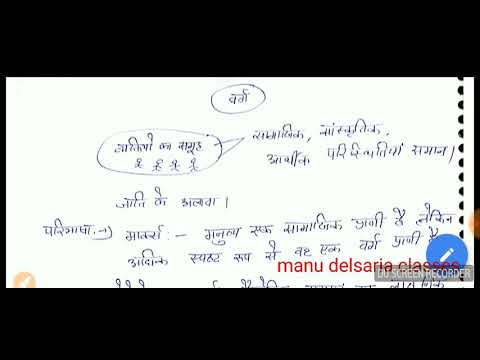 वर्ग
व्यक्तियों का समूह
सामाजिक, सांस्कृतिक,
आर्थिक परिस्थितियां समान।
जाति के अलावा।
परिभाषा → मार्क्स :- मनुष्य एक सामाजिक प्राणी है लेकिन
स्पष्ट रूप से वह एक वर्ग प्राणी है
manu delsaria classes
DU SCREEN RECORDER